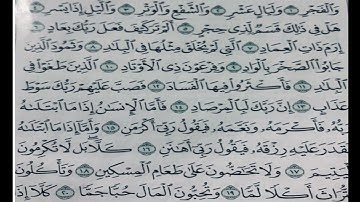 وَٱلْفَجْرِ ١ وَلَيَالٍ عَشْرٍ ٢ وَٱلشَّفْعِ وَٱلْوَتْرِ ٣ وَٱلَّيْلِ إِذَا يَسْرِ ٤
هَلْ فِى ذَٰلِكَ قَسَمٌ لِّذِى حِجْرٍ ٥ أَلَمْ تَرَ كَيْفَ فَعَلَ رَبُّكَ بِعَادٍ ٦
إِرَمَ ذَاتِ ٱلْعِمَادِ ٧ ٱلَّتِى لَمْ يُخْلَقْ مِثْلُهَا فِى ٱلْبِلَٰدِ ٨ وَثَمُودَ ٱلَّذِينَ
جَابُوا۟ ٱلصَّخْرَ بِٱلْوَادِ ٩ وَفِرْعَوْنَ ذِى ٱلْأَوْتَادِ ١٠ ٱلَّذِينَ طَغَوْا۟ فِى
١١ فَأَكْثَرُوا۟ فِيهَا ٱلْفَسَادَ ١٢ فَصَبَّ عَلَيْهِمْ رَبُّكَ سَوْطَ
عَذَابٍ ١٣ إِنَّ رَبَّكَ لَبِٱلْمِرْصَادِ ١٤ فَأَمَّا ٱلْإِنسَٰنُ إِذَا مَا ٱبْتَلَىٰهُ
رَبُّهُۥ فَأَكْرَمَهُۥ وَنَعَّمَهُۥ فَيَقُولُ رَبِّىٓ أَكْرَمَنِ ١٥ وَأَمَّآ إِذَا مَا ٱبْتَلَىٰهُ
فَقَدَرَ عَلَيْهِ رِزْقَهُۥ فَيَقُولُ رَبِّىٓ أَهَٰنَنِ ١٦ كَلَّا ۖ بَل لَّا تُكْرِمُونَ
ٱلْيَتِيمَ ١٧ وَلَا تَحَٰٓضُّونَ عَلَىٰ طَعَامِ ٱلْمِسْكِينِ ١٨ وَتَأْكُلُونَ
ٱلتُّرَاثَ أَكْلًا لَّمًّا ١٩ وَتُحِبُّونَ ٱلْمَالَ حُبًّا جَمًّا ٢٠ كَلَّآ إِذَا